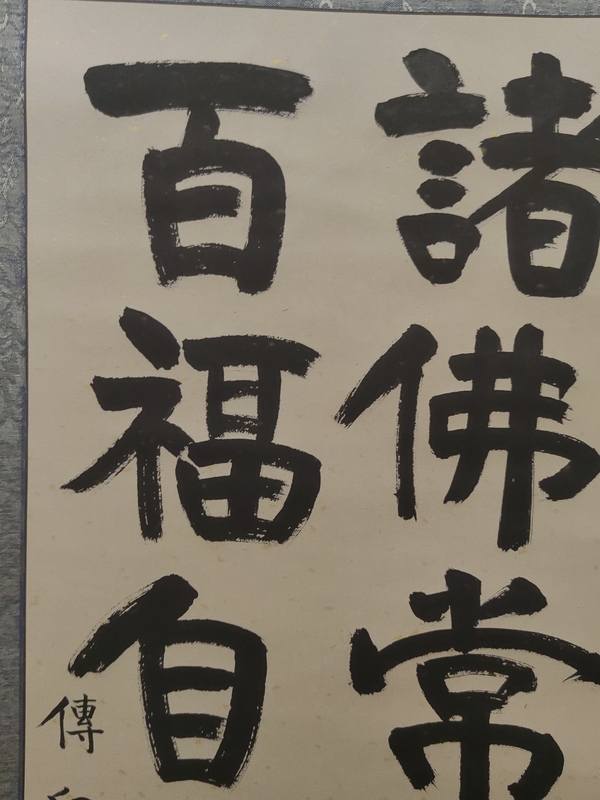 諸佛常
百福自
傳